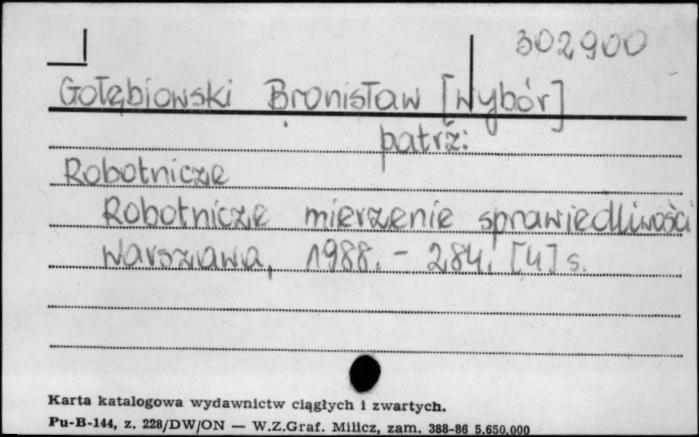 302900
Gołębiowski Bronisław [Wybór]
patrz:
Robotnicze
Robotnicze mierzenie sprawiedliwości
Warszawa, 1988. - 284, [4] s.
Karta katalogowa wydawnictw ciągłych i zwartych.
Pu-B-144, z. 228/DW/ON — W.Z.Graf. Milicz, zam. 388-86 5.650.000